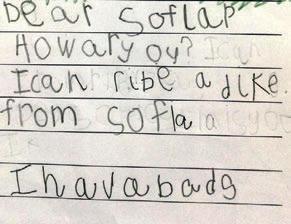 Dear Soflap
How ary oy?
I can ribe a dike.
from sofla
I havabads